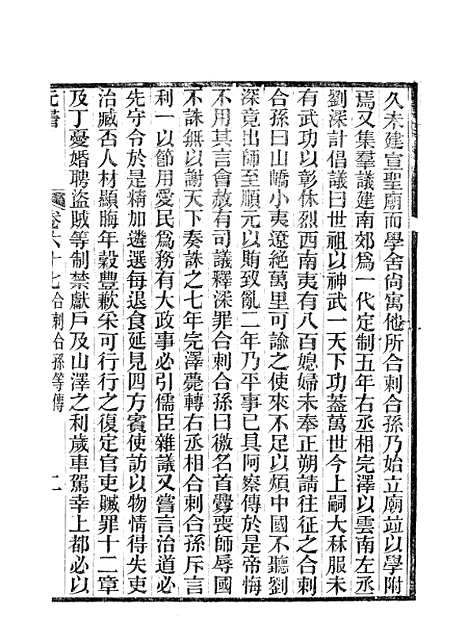 久未建宣聖廟而學舍尙寓他所合剌合孫乃始立廟竝以學附
焉又集羣議建南郊爲一代定制五年右丞相完澤以雲南左丞
劉深計倡議曰世祖以神武一天下功葢萬世今上嗣大秝服未
有武功以彰休烈西南夷有八百媳婦未奉正朔請往征之合剌
合孫曰山嶠小夷遼絶萬里可諭之使來不足以煩中國不聽劉
深竟出師至順元以賄致亂二年乃平事已具阿察傳於是帝悔
不用其言會赦有司議釋深罪合剌合孫曰徼名首釁喪師辱國
不誅無以謝天下奏誅之七年完澤薨轉右丞相合剌合孫斥言
利一以節用愛民爲務有大政事必引儒臣雜議又嘗言治道必
先守令於是精加遴選每退食延見四方賓使訪以物情得失吏
治臧否人材顯晦年穀豐歉采可行行之復定官吏贓罪十二章
及丁憂婚聘盜賊等制禁獻戶及山澤之利歲車駕幸上都必以
元書 卷六十七合剌合孫等傳 二